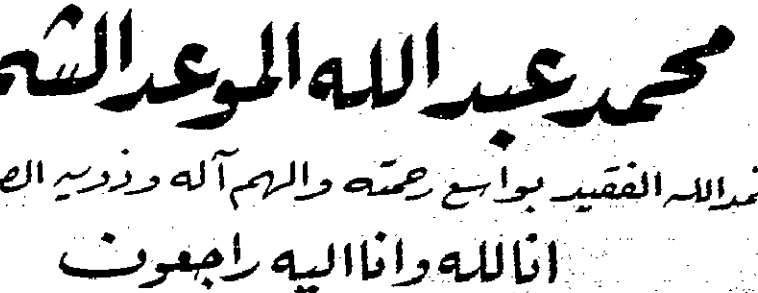 محمد عبدالله الموعد
الله الفقيد بواسع رحمته والهم آله وذويه
انا لله وانا اليه راجعون